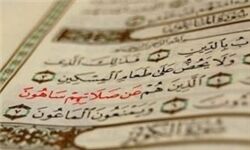 بِالدِّينِ ۝ فَذَٰلِكَ الَّذِي
وَلَا يَحُضُّ عَلَىٰ طَعَامِ الْمِسْكِينِ
الَّذِينَ هُمْ عَنْ صَلَاتِهِمْ سَاهُونَ
وَيَمْنَعُونَ الْمَاعُونَ ۝
سُورَةُ الْكَوْثَرِ